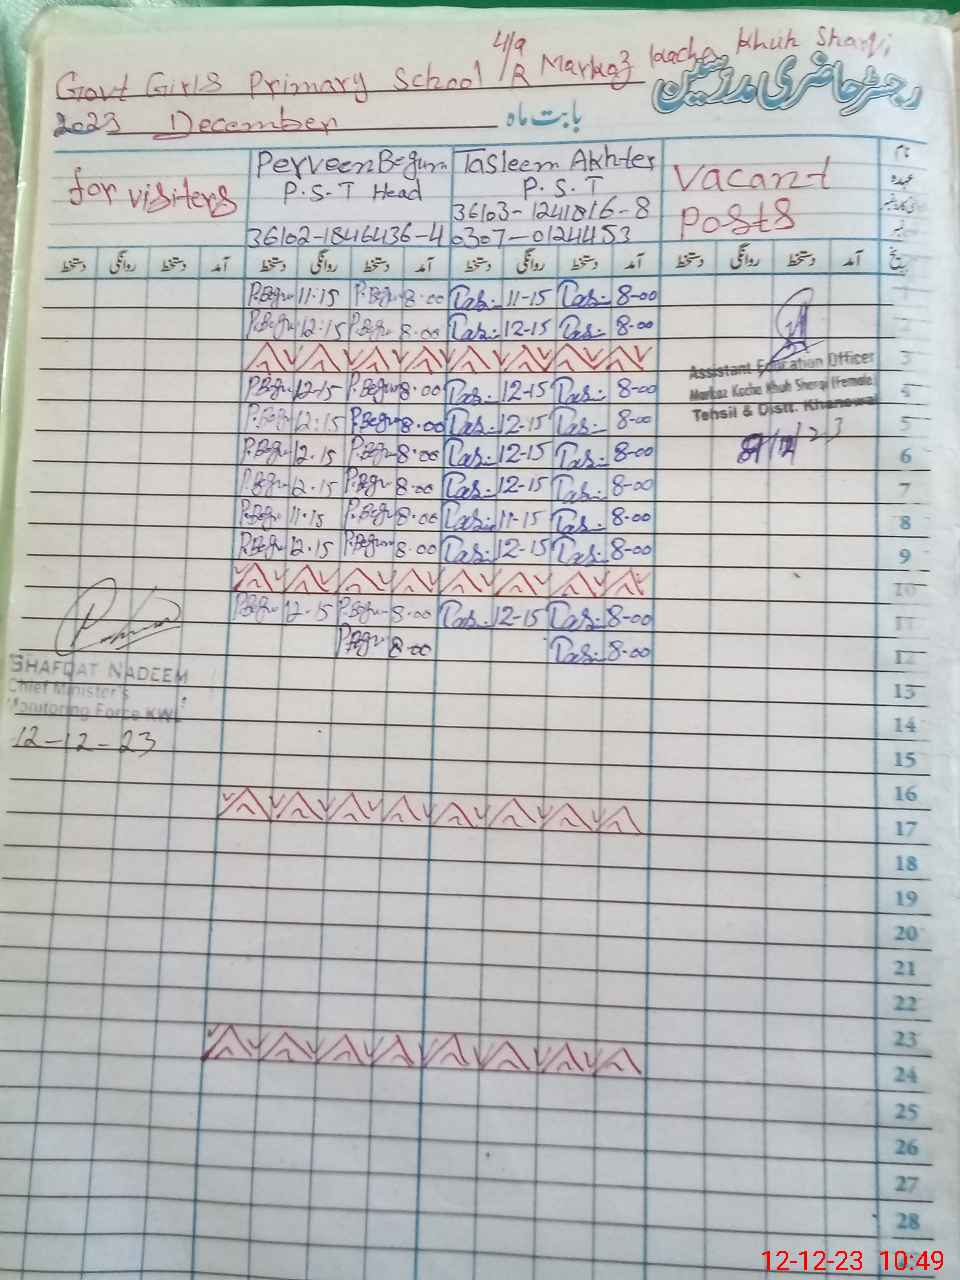 4/9
R Markaz Kacha Khuh Sharqi
Govt Girls Primary School
رجسٹر حاضری مدرسین
2023 December بابت ماہ
for visiters
Perveen Begum
P.S.T Head
36102-1846436-4
Tasleem Akhter
P.S.T
36103-1241816-8
0307-0124453
Vacant
Posts
نام
عہدہ
تاریخ آمد دستخط روانگی دستخط آمد دستخط روانگی دستخط آمد دستخط روانگی دستخط آمد دستخط روانگی دستخط
P.Begu 11:15 P.Begu 8.00 Tas. 11-15 Tas. 8-00 1
P.Begu 12:15 P.Begu 8.00 Tas. 12-15 Tas. 8-00 2
3
P.Begu 12-15 P.Begu 8.00 Tas. 12-15 Tas. 8-00 4
P.Begu 12:15 P.Begu 8.00 Tas. 12-15 Tas. 8-00 5
P.Begu 12.15 P.Begu 8.00 Tas. 12-15 Tas. 8-00 6
P.Begu 12.15 P.Begu 8.00 Tas. 12-15 Tas. 8-00 7
P.Begu 11.15 P.Begu 8.00 Tas. 11-15 Tas. 8-00 8
P.Begu 12.15 P.Begum 8.00 Tas. 12-15 Tas. 8-00 9
10
P.Begu 12-15 P.Begu 8.00 Tas. 12-15 Tas. 8-00 11
P.Begu 8.00 Tas. 8-00 12
Assistant Education Officer
Markaz Kacha Khuh Sharqi (Female)
Tehsil & Distt. Khanewal
SHAFQAT NADEEM
Chief Minister's
Monitoring Force KWL
12-12-23
13
14
15
16
17
18
19
20
21
22
23
24
25
26
27
28
12-12-23 10:49